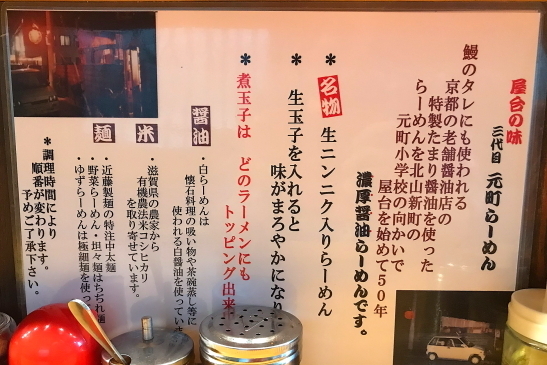 屋台の味
三代目 元町らーめん
鰻のタレにも使われる
京都の老舗醤油店の
特製たまり醤油を使った
らーめんを北山新町の
元町小学校の向かいで
屋台を始めて50年
濃厚醤油らーめんです。
＊名物 生ニンニク入りらーめん
＊ 生玉子を入れると
味がまろやかになり
＊煮玉子は どのラーメンにも
トッピング出来
醤油
・白らーめんは
懐石料理の吸い物や茶碗蒸し等に
使われる白醤油を使っていま
米
・滋賀県の農家から
有機農法米コシヒカリ
を取り寄せています。
麺
・近藤製麺の特注中太麺
・野菜らーめん・坦々麺はちぢれ麺
・ゆずらーめんは極細麺を使っ
＊調理時間により
順番が変わります。
予めご了承下さい。